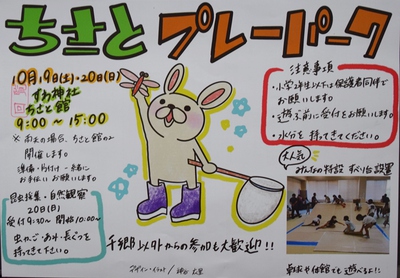 ちさと プレーパーク
10月19日(土)・20日(日)
すわ神社
ちさと館
9:00 〜 15:00
※ 雨天の場合、ちさと館のみ
開催します。
準備・片付け 一緒に
お手伝い お願いします。
昆虫採集・自然観察
20日(日)
受付9:30〜 開始10:00〜
虫かご・あみ・長ぐつを
持ってきて下さい。
注意事項
・小学2年生以下は保護者同伴で
お願いします。
・遊ぶ前に受付をお願いします。
・水分を 持ってきてください。
大人気
みんなの特設 すべり台 設置
卓球や体館でも 遊べるよ!!
千郷以外からの参加も大歓迎!!
デザイン・イラスト/